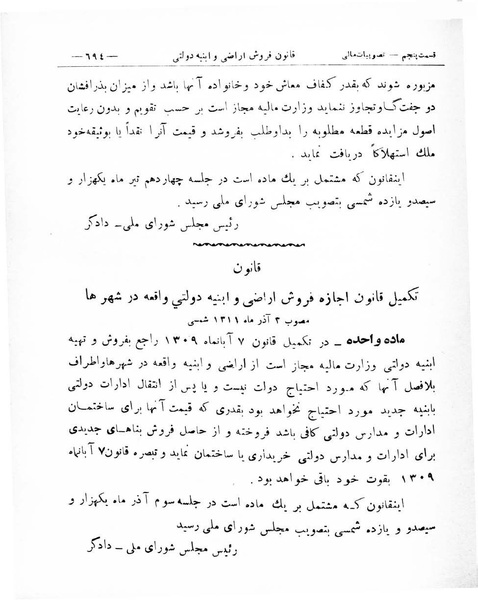 قسمت پنجم — تصویبات مالی
قانون فروش اراضی و ابنیه دولتی
— ۶۹۴ —
مزبوره شوند که بقدر کفاف معاش خود و خانواده آنها باشد و از میزان بذرافشان
دو جفت گاو تجاوز ننماید وزارت مالیه مجاز است بر حسب تقویم و بدون رعایت
اصول مزایده قطعه مطلوبه را بداوطلب بفروشد و قیمت آنرا نقداً یا بوثیقه خود
ملك استهلاکاً دریافت نماید .
اینقانون که مشتمل بر یك ماده است در جلسه چهاردهم تیر ماه یکهزار و
سیصد و یازده شمسی بتصویب مجلس شورای ملی رسید .
رئیس مجلس شورای ملی ــ دادگر
قانون
تکمیل قانون اجازه فروش اراضی و ابنیه دولتی واقعه در شهر ها
مصوب ۳ آذر ماه ۱۳۱۱ شمسی
ماده واحده ــ در تکمیل قانون ۷ آبانماه ۱۳۰۹ راجع بفروش و تهیه
ابنیه دولتی وزارت مالیه مجاز است از اراضی و ابنیه واقعه در شهرها و اطراف
بلافصل آنها که مورد احتیاج دولت نیست و یا پس از انتقال ادارات دولتی
بابنیه جدید مورد احتیاج نخواهد بود بقدری که قیمت آنها برای ساختمان
ادارات و مدارس دولتی کافی باشد فروخته و از حاصل فروش بناهای جدیدی
برای ادارات و مدارس دولتی خریداری یا ساختمان نماید و تبصره قانون ۷ آبانماه
۱۳۰۹ بقوت خود باقی خواهد بود .
اینقانون که مشتمل بر یك ماده است در جلسه سوم آذر ماه یکهزار و
سیصد و یازده شمسی بتصویب مجلس شورای ملی رسید
رئیس مجلس شورای ملی ــ دادگر